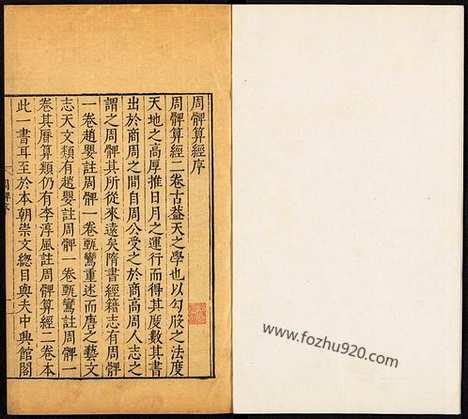 周髀算經序
周髀算經二卷古蓋天之學也以勾股之法度
天地之高厚推日月之運行而得其度數其書
出於商周之間自周公受之於商高周人志之
謂之周髀其所從來遠矣隋書經籍志有周髀
一卷趙嬰註周髀一卷甄鸞重述而唐之藝文
志天文類有趙嬰註周髀一卷甄鸞註周髀一
卷其曆算類仍有李淳風註周髀算經二卷本
此一書耳至於本朝崇文總目與夫中興館閣
www.fozhu920.com